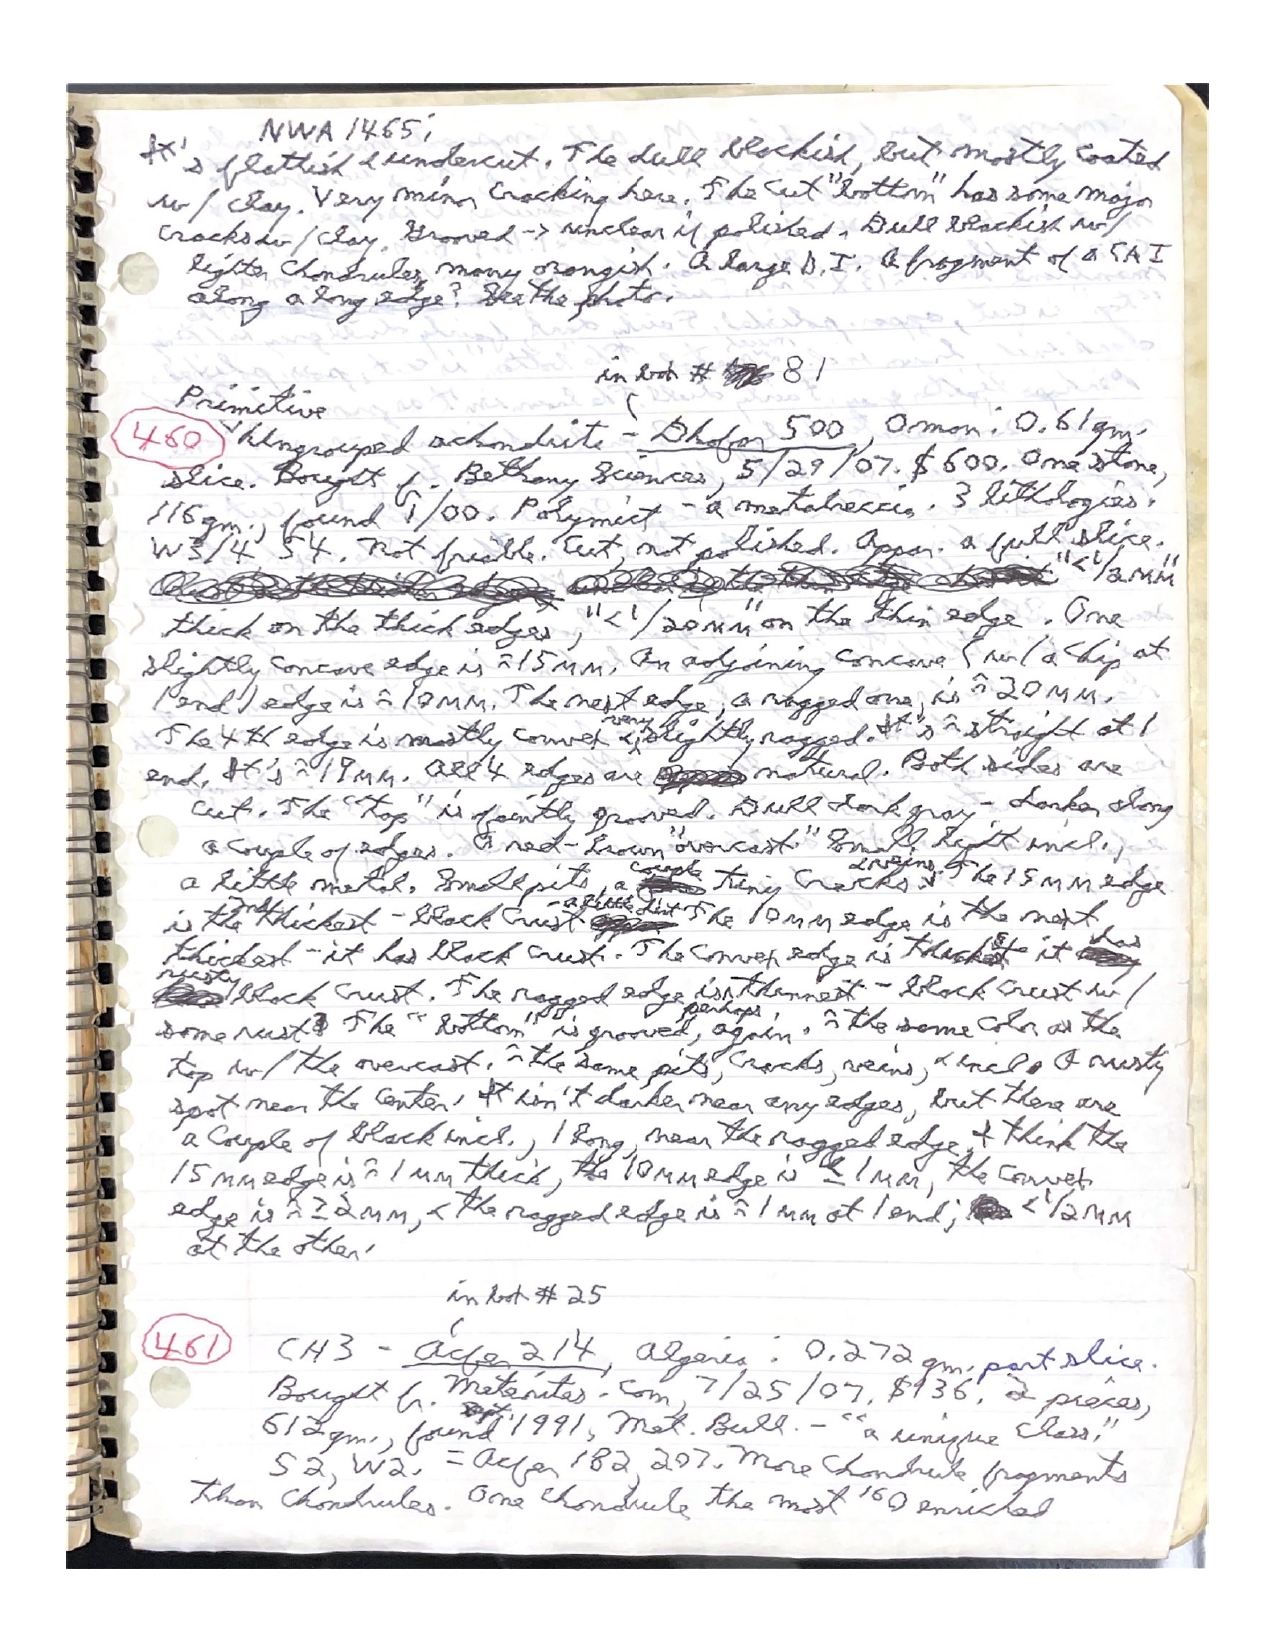 NWA 1465;
It's flattish & undercut. The dull blackish, but mostly coated
w/ clay. Very minor cracking here. The cut "bottom" has some major
cracks w/ clay. Grooved -> unclear if polished. Dull blackish w/
lighter chondrules, many orangish. A large D.I. A fragment of a CAI
along a long edge? See the photo.
in bot. # 81
Primitive
460 Ungrouped achondrite - Dhofar 500, Oman: 0.61 gm.
slice. Bought f. Bethany Sciences, 5/29/07. $600. One stone,
116 gm., found 1/00. Polymict - a metabreccia. 3 lithologies.
W3/4 S4. Not friable. Cut, not polished. Appar. a full slice.
"<1/2 mm"
thick on the thick edges, "<1/20 mm" on the thin edge. One
slightly concave edge is ≈15 mm. An adjoining concave (w/ a chip at
1 end) edge is ≈10 mm. The next edge, a ragged one, is ≈20 mm.
The 4th edge is mostly convex & very slightly ragged. It's ≈straight at 1
end. It's ≈19 mm. All 4 edges are natural. Both sides are
cut. The "top" is faintly grooved. Dull dark gray - darker along
a couple of edges. A red-brown "overcast." Small light incl.,
a little metal. Small pits, a couple tiny cracks & veins. The 15 mm edge
is the 2nd thickest - black crust - a little dirt. The 10 mm edge is the next
thickest - it has black crust. The convex edge is thickest - it has
rusty black crust. The ragged edge is thinnest - black crust w/
some rust? The "bottom" is grooved, perhaps, again. ≈the same color as the
top w/ the overcast. ≈the same pits, cracks, veins, & incl. A rusty
spot near the center. It isn't darker near any edges, but there are
a couple of black incl., 1 long, near the ragged edge. I think the
15 mm edge is ≈1 mm thick, the 10 mm edge is ≤1 mm, the convex
edge is ≈≥2 mm, & the ragged edge is ≈1 mm at 1 end; <1/2 mm
at the other.
in bot. # 25
461 CH3 - Acfer 214, Algeria: 0.272 gm. part slice.
Bought f. Meteorites.com, 7/25/07. $936. 2 pieces,
612 gm., found 1991, Met. Bull. - "a unique class."
S2, W2. = Acfer 182, 207. More chondrule fragments
than chondrules. One chondrule the most ¹⁶O enriched